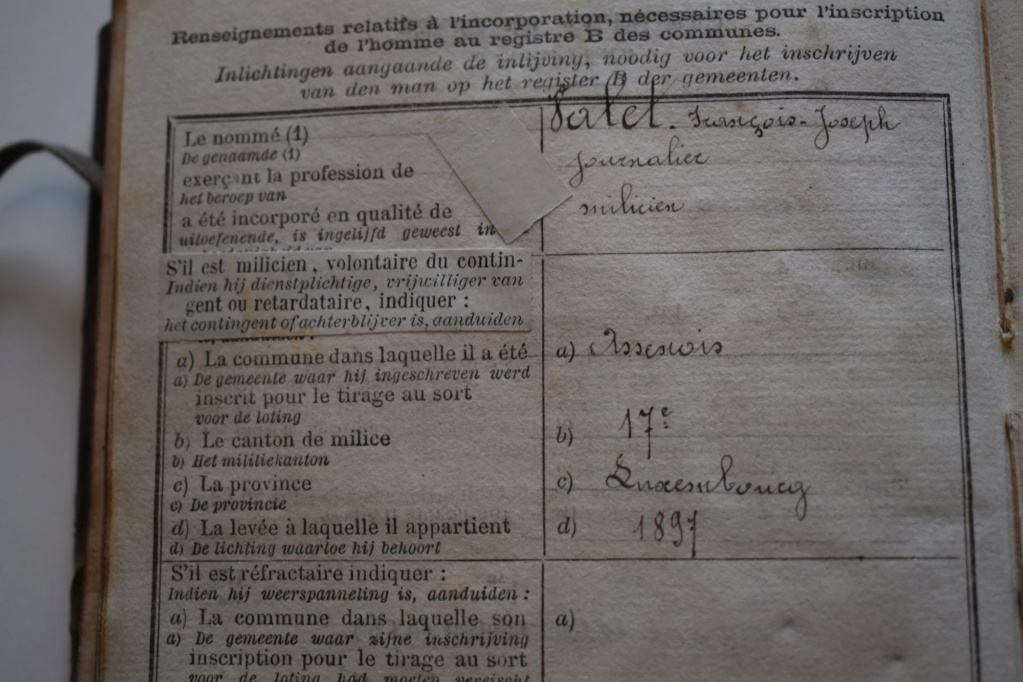 Renseignements relatifs à l'incorporation, nécessaires pour l'inscription
de l'homme au registre B des communes.
Inlichtingen aangaande de inlijving, noodig voor het inschrijven
van den man op het register B der gemeenten.
Le nommé (1)
François-Joseph
De genaamde (1)
exerçant la profession de
journalier
het beroep van
a été incorporé en qualité de
milicien
uitoefenende, is ingelijfd geweest in
S'il est milicien, volontaire du contin-
Indien hij dienstplichtige, vrijwilliger van
gent ou retardataire, indiquer :
het contingent of achterblijver is, aanduiden
a) La commune dans laquelle il a été
a) Assenois
a) De gemeente waar hij ingeschreven werd
inscrit pour le tirage au sort
voor de loting
b) Le canton de milice
b) 17e
b) Het militiekanton
c) La province
c) Luxembourg
c) De provincie
d) La levée à laquelle il appartient
d) 1897
d) De lichting waartoe hij behoort
S'il est réfractaire indiquer :
Indien hij weerspanneling is, aanduiden :
a) La commune dans laquelle son
a)
a) De gemeente waar zijne inschrijving
inscription pour le tirage au sort
voor de loting had moeten vereischt